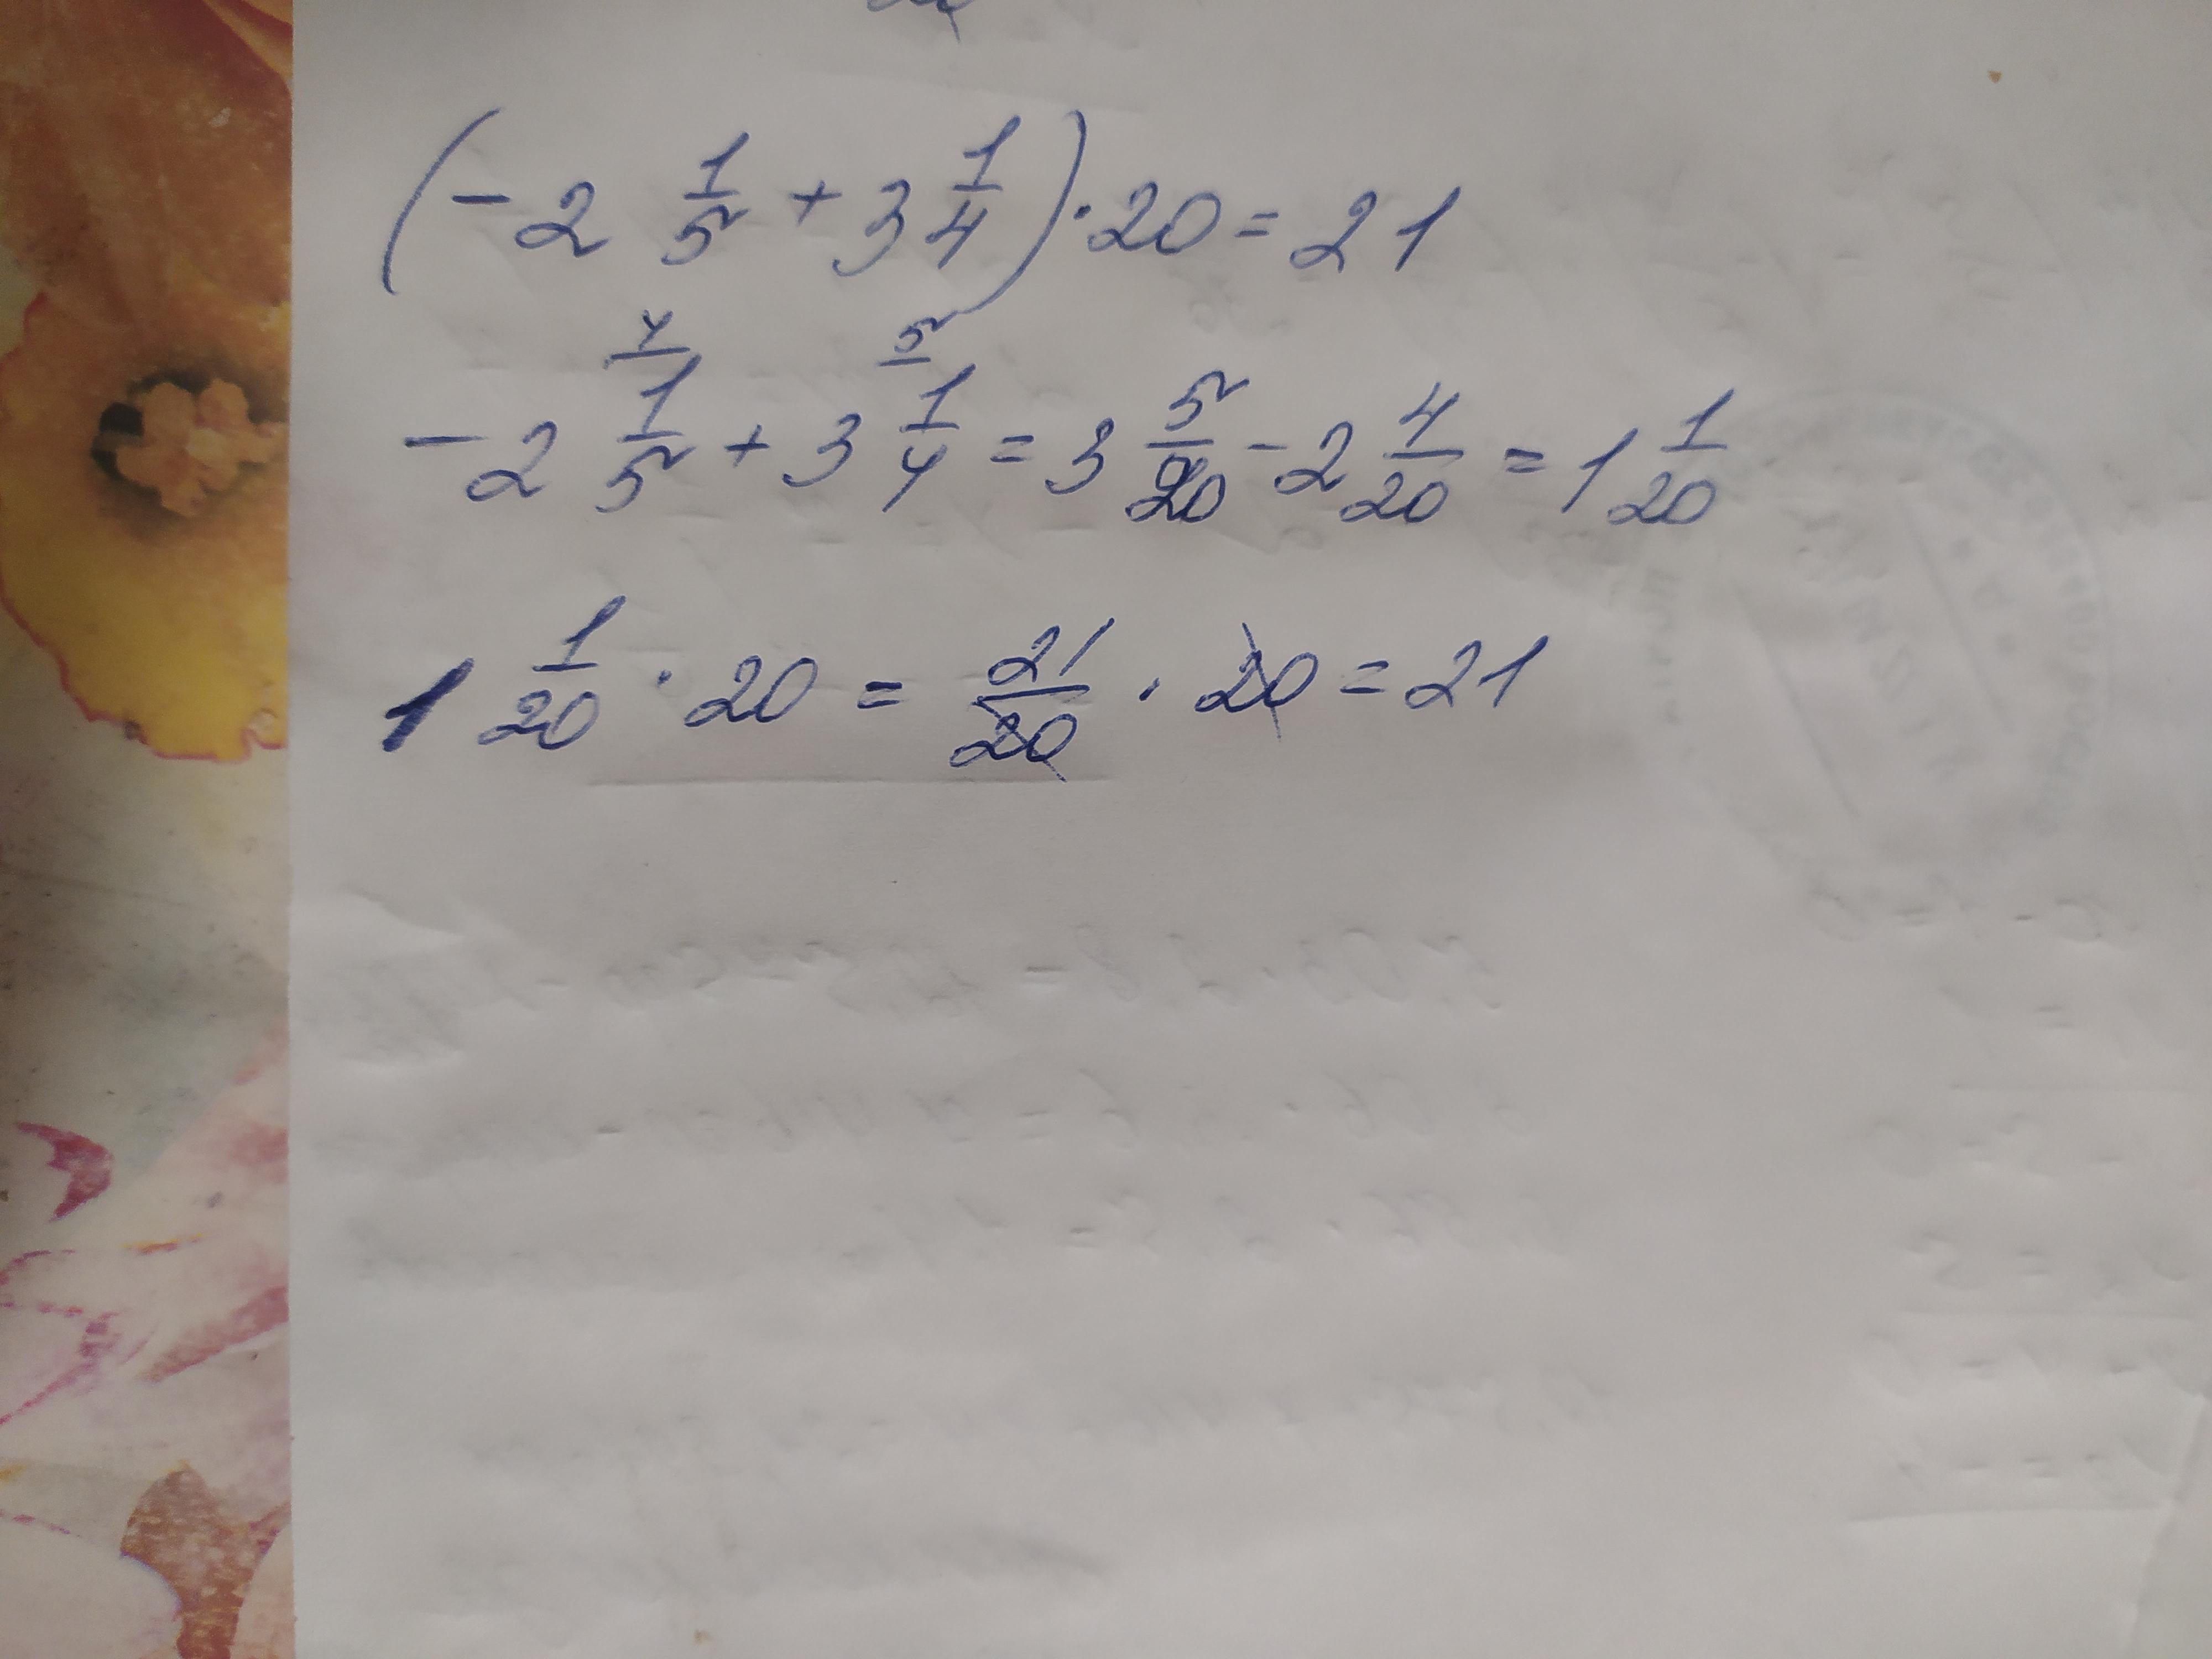 (-2 1/5 + 3 1/4) · 20 = 21
4 5
-2 1/5 + 3 1/4 = 3 5/20 - 2 4/20 = 1 1/20
1 1/20 · 20 = 21/20 · 20 = 21